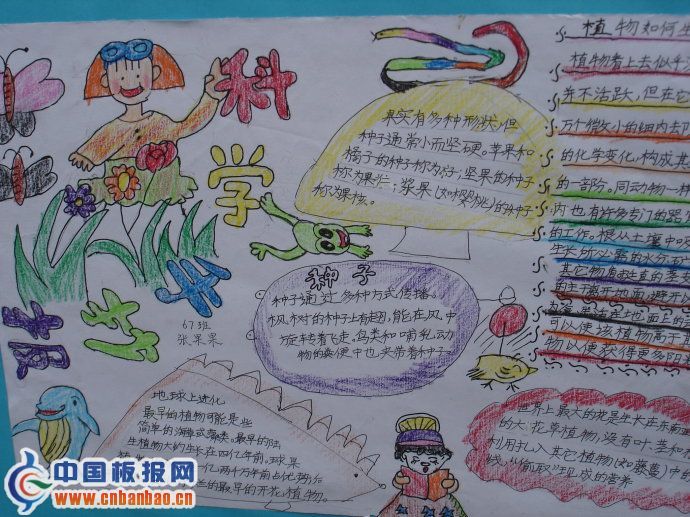 科学
报
67班
张果果
果实有多种形状,但
种子通常小而坚硬。苹果和
橘子的种子称为籽;坚果的种子
称为果仁;浆果(如樱桃)的种子
称为果核。
种子
种子通过多种方式传播。
枫树的种子上有翅,能在风中
旋转着飞走。鸟类和哺乳动
物的粪便中也夹带着种子
植物如何生
植物看上去似乎
并不活跃,但在它
万个微小的细
的化学变化,构成其
的一部分。同动物一样
内也有许多专门的器
的工作。根从土壤中吸
生长所必需的水分
可以使该植物高于
物以便获得更多阳
地球上进化
最早的植物可能是些
简单的海
生植物大约生长在四亿年前。
亿两千万年前
的最早的开花植物。
世界上最大的花是生长在东南亚
的大花草植物,没有叶、茎和
利用扎入其它植物(如藤蔓)中的
线,"偷取"现成的营养
中国板报网
www.cnbanbao.cn